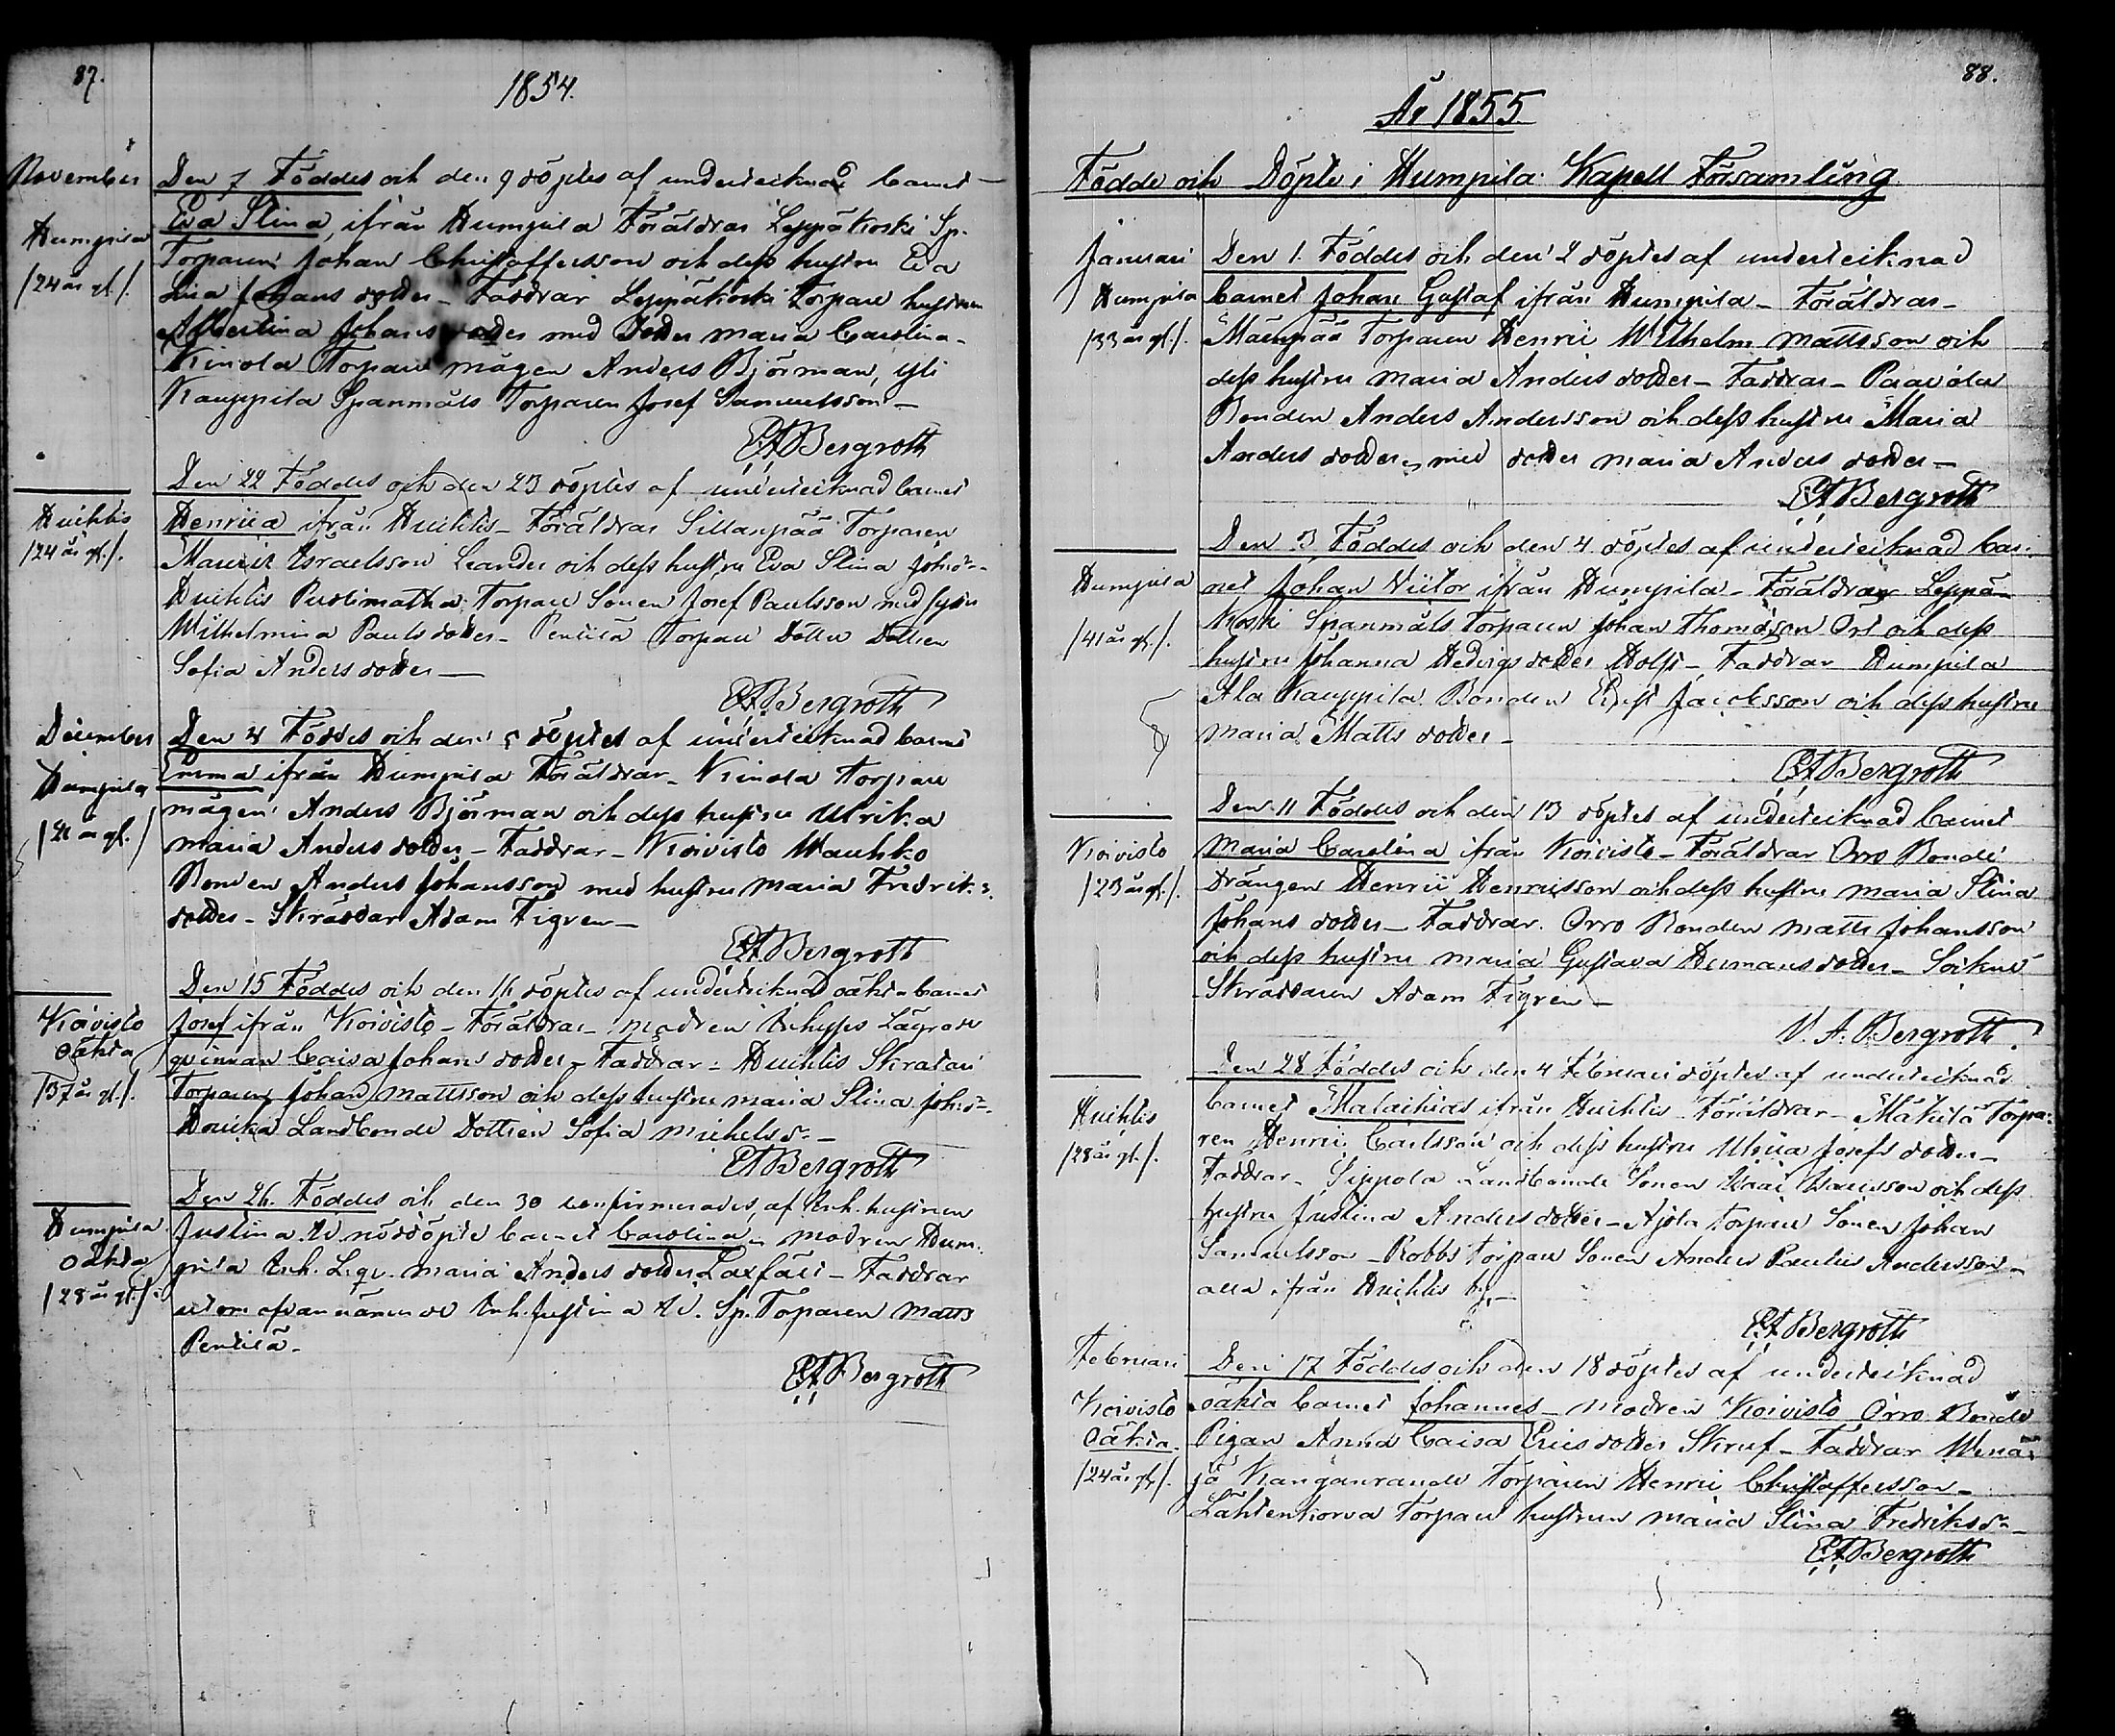 87.
1854.
November
Den 7 Föddes och den 9 döptes af undertecknad barnet
Humpila
/24 år gl./.
Eva Stina, ifrån Humpila Föräldrar Leppäkoski Sp.
Torparen Johan Christoffersson och dess hustru Eva
Lina Johans dotter – Faddrar Leppäkoski Torpare hustrun
Albertina Johans dotter med dotter Maria Carolina –
Torpare mågen Anders Björman, Yli
Kauppila Spanmåls Torparen Josef Samuelsson –
EABergroth
Den 22 Föddes och den 23 döptes af undertecknad barnet
Huihtis
/24 år gl./.
Henrica ifrån Huihtis – Föräldrar Sillanpää Torparen
Israelsson Leander och dess hustru Eva Stina Johsdr –
Huihtis Torpare Sonen Josef Paulsson med
Wilhelmina Pauls dotter – Penttilä Torpare
Sofia Anders dotter –
EABergroth
December
Den 4 Föddes och den 5 döptes af undertecknad barnet
Humpila
Emma ifrån Humpila Föräldrar – Torpare
mågen Anders Björman och dess hustru Ulrika
Maria Anders dotter – Faddrar – Koivisto Wauhko
Bonden Anders Johansson med hustru Maria Fredriks
dotter – Skräddar Adam Figren –
EABergroth
Den 15 Föddes och den 16 döptes af undertecknad oäkta barnet
Koivisto
Oäkta
/37 år gl./.
Josef ifrån Koivisto – Föräldrar – modren Inhyses Lägrade
qvinnan Caisa Johans dotter – Faddrar – Huihtis
Torparen Johan Mattsson och dess hustru Maria Stina Johsdr –
Landbonde Sofia Michelsdr –
EABergroth
Den 26. Föddes och den 30 confirmerades, af Inh. hustrun
Humpila
Oäkta
/28 år gl./.
Justina nöddöpte barnet Carolina – modren Hum-
pila Inh. L. qv. Maria Anders dotter – Faddrar
utom ofvannämnde Inh. Justina Sp. Toparen Matts
Penttilä –
EABergroth
88.
År 1855.
Födde och Döpte i Humpila Kapell Församling
Januari
Den 1. Föddes och den 2 döptes af undertecknad
Humpila
/33 år gl./.
barnet Johan Gustaf ifrån Humpila – Föräldrar –
Mäenpää Torparen Henric Wilhelm Mattsson och
dess hustru Maria Anders dotter – Faddrar –
Bonden Anders Andersson och dess hustru Maria
Anders dotter – med dotter Maria Anders dotter –
EABergroth
Den 3 Föddes och den 4 döptes af undertecknad bar-
Humpila
/41 år gl./.
net Johan Victor ifrån Humpila – Föräldrar Leppä-
koski Spanmåls Torparen Johan Thomasson och dess
hustru Johanna Hedvigs dotter – Faddrar Humpila
Ala Kauppila Bonden Jacobsson och dess hustru
Maria Matts dotter –
EABergroth
Den 11 Föddes och den 13 döptes af undertecknad barnet
Koivisto
/23 år gl./.
Maria Carolina ifrån Koivisto – Föräldrar Orro Bonde
drängen Henric Henricsson och dess hustru Maria Stina
Johans dotter – Faddrar. Orro Bonden Matts Johansson
och dess hustru Maria Gustava Hermans dotter –
Skräddaren Adam Figren –
Bergroth.
Den 28 Föddes och den 4 Februari döptes af undertecknad
Huihtis
/28 år gl./.
barnet Malachias ifrån Huihtis Föräldrar – Mäkilä Torpa-
ren Henric Carlsson och dess hustru Josefs dotter –
Faddrar – Seppola Landbonde Sonen och dess
hustru Justina Anders dotter – Torpare Sonen Johan
Samuelsson – Robbs Torpare Sonen Anders Paulus Andersson –
alla ifrån Huihtis by –
EABergroth
Februari
Den 17 Föddes och den 18 döptes af undertecknad
Koivisto
Oäkta
/24 år gl./.
oäkta barnet Johannes – modren Koivisto Orro Bonde
Pigan Anna Caisa Erics dotter – Faddrar
Torparen Henric Christoffersson –
Lähtenkorva Torpare hustrun Maria Stina Fredriksdr –
EABergroth